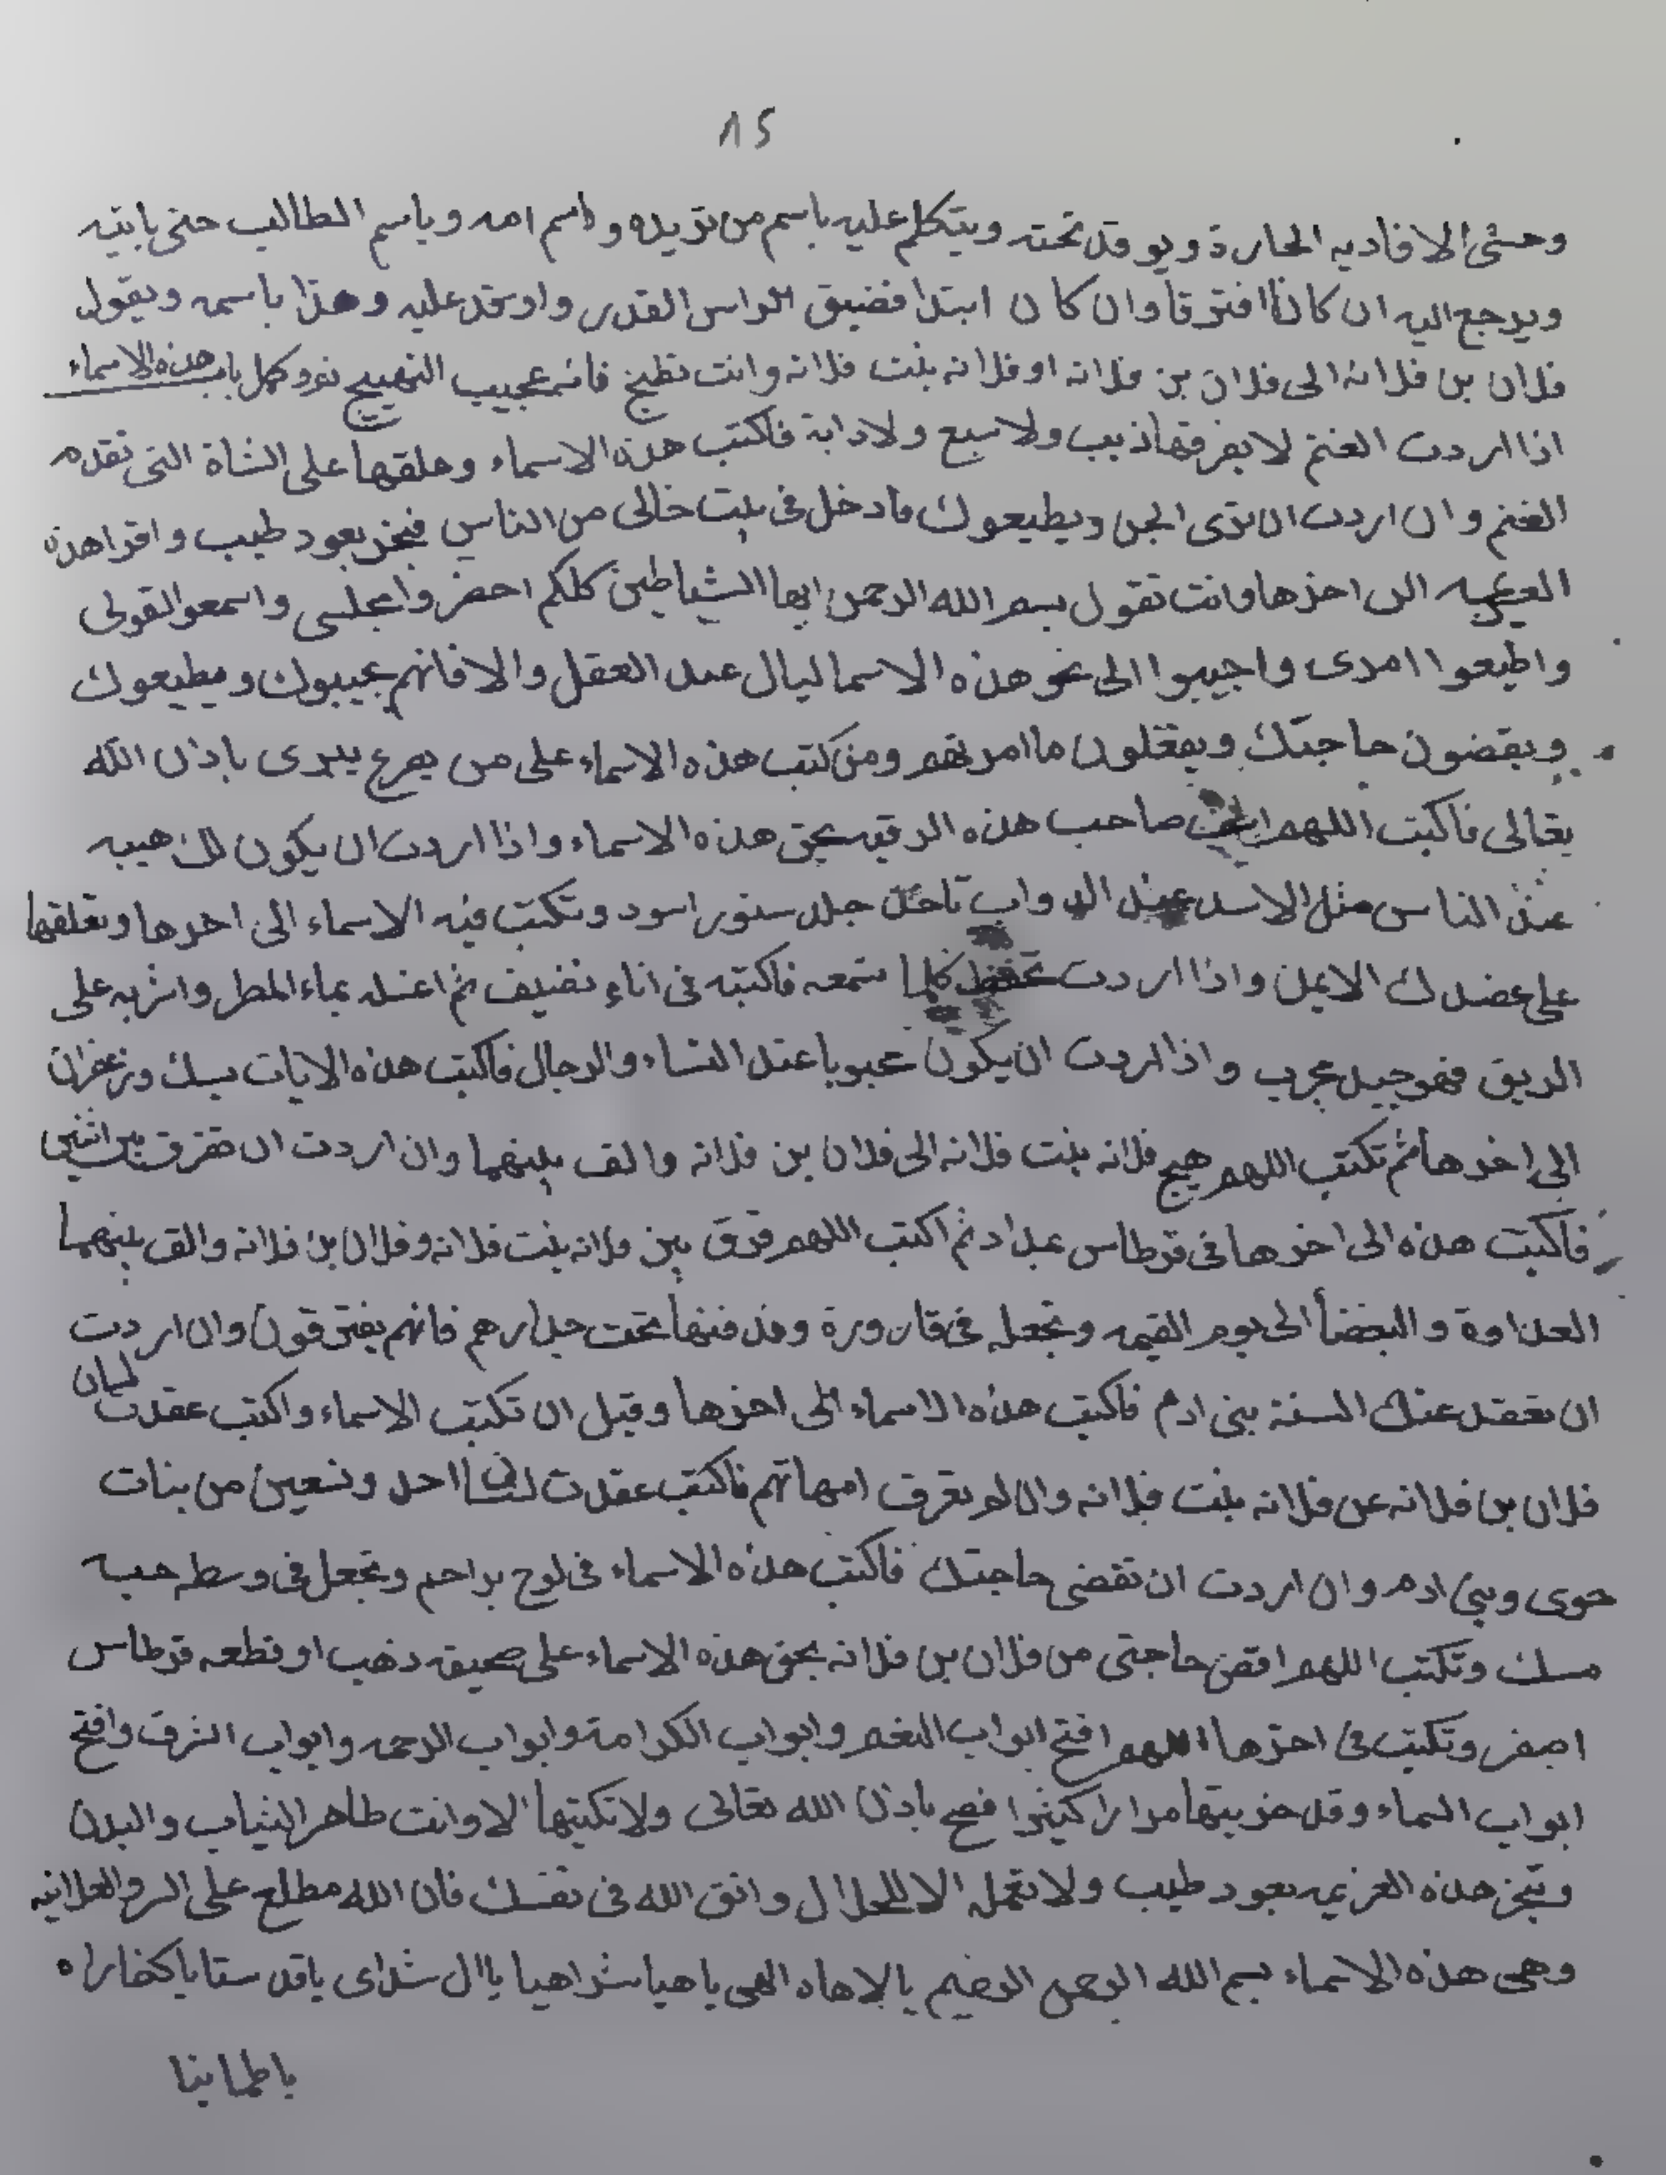 ٨٢
وحشى الافاديه الحارة ويوقد تحته ويتكلم عليه باسم من تريده واسم امه وباسم الطالب حتى ياتيه
ويرجع اليه ان كانا افترقا وان كان ابتدا فضيق الراس القدر واوقد عليه وهذا باسمه ويقول
فلان بن فلانه الى فلان بن فلانه او فلانه بنت فلانه وانت تطبخ فانه عجيب التهييج باب هذه الاسماء
اذا اردت الغنم لا يفرقها ذيب ولا سبع ولا دابة فاكتب هذه الاسماء وعلقها على الشاة التى تقدم
الغنم وان اردت ان ترى الجن ويطيعوك فادخل فى بيت خالى من الناس فبخر بعود طيب واقرا هذه
العزيمه الى اخرها وانت تقول بسم الله الرحمن ايها الشياطين كلكم احضروا مجلسى واسمعوا لقولى
واطيعوا امرى واجيبوا الى نحو هذه الاسما ليال عند العقل والا فانهم يجيبوك ويطيعوك
ويقضون حاجتك ويفعلون ما امرتهم ومن كتب هذه الاسماء على من يصرع يبرى باذن الله
تعالى فاكتب اللهم صاحب هذه الرقيه بحق هذه الاسماء واذا اردت ان يكون لك هيبه
عند الناس مثل الاسد عند الدواب تاخذ جلد سنور اسود وتكتب فيه الاسماء الى اخرها وتعلقها
على عضدك الايمن واذا اردت تحفظ كلما تسمعه فاكتبه فى اناء نضيف ثم اغسله بماء المطر واشربه على
الريق فهو جيد مجرب واذا اردت ان يكون محبوبا عند النساء والرجال فاكتب هذه الايات بمسك وزعفران
الى اخرها ثم تكتب اللهم هيج فلانه بنت فلانه الى فلان بن فلانه والف بينهما وان اردت ان تفرق بين اثنين
فاكتب هذه الى اخرها فى قرطاس بمداد ثم اكتب اللهم فرق بين فلانه بنت فلانه وفلان بن فلانه والق بينهما
العداوة والبغضأ الى يوم القيمه وتجعله فى قارورة وتدفنها تحت جدارهم فانهم يفترقون وان اردت
ان تعقد عنك السنة بنى ادم فاكتب هذه الاسماء الى اخرها وقبل ان تكتب الاسماء واكتب عقدت لسان
فلان بن فلانه عن فلانه بنت فلانه وان لم تعرف امهاتهم فاكتب عقدت لسان احد وتسعين من بنات
حوى وبنى ادم وان اردت ان تقضى حاجتك فاكتب هذه الاسماء فى لوح وتجعل فى وسطه حبه
مسك وتكتب اللهم اقض حاجتى من فلان بن فلانه بحق هذه الاسماء على صحيفه ذهب او قطعه قرطاس
اصفر وتكتب فى اخرها اللهم افتح ابواب النعم وابواب الكرامة وابواب الرحمه وابواب الرزق وافتح
ابواب السماء وقد جربتها مرارا كثيرا فصح باذن الله تعالى ولا تكتبها الا وانت طاهر الثياب والبدن
وتبخر هذه العزيمه بعود طيب ولا تعمله الا للحلال واتق الله فى نفسك فان الله مطلع على السر والعلانيه
وهى هذه الاسماء بسم الله الرحمن الرحيم يا لاهاه الهى يا هيا شراهيا يا ال شداى يا قدستا يا كخاراه
باطماينا